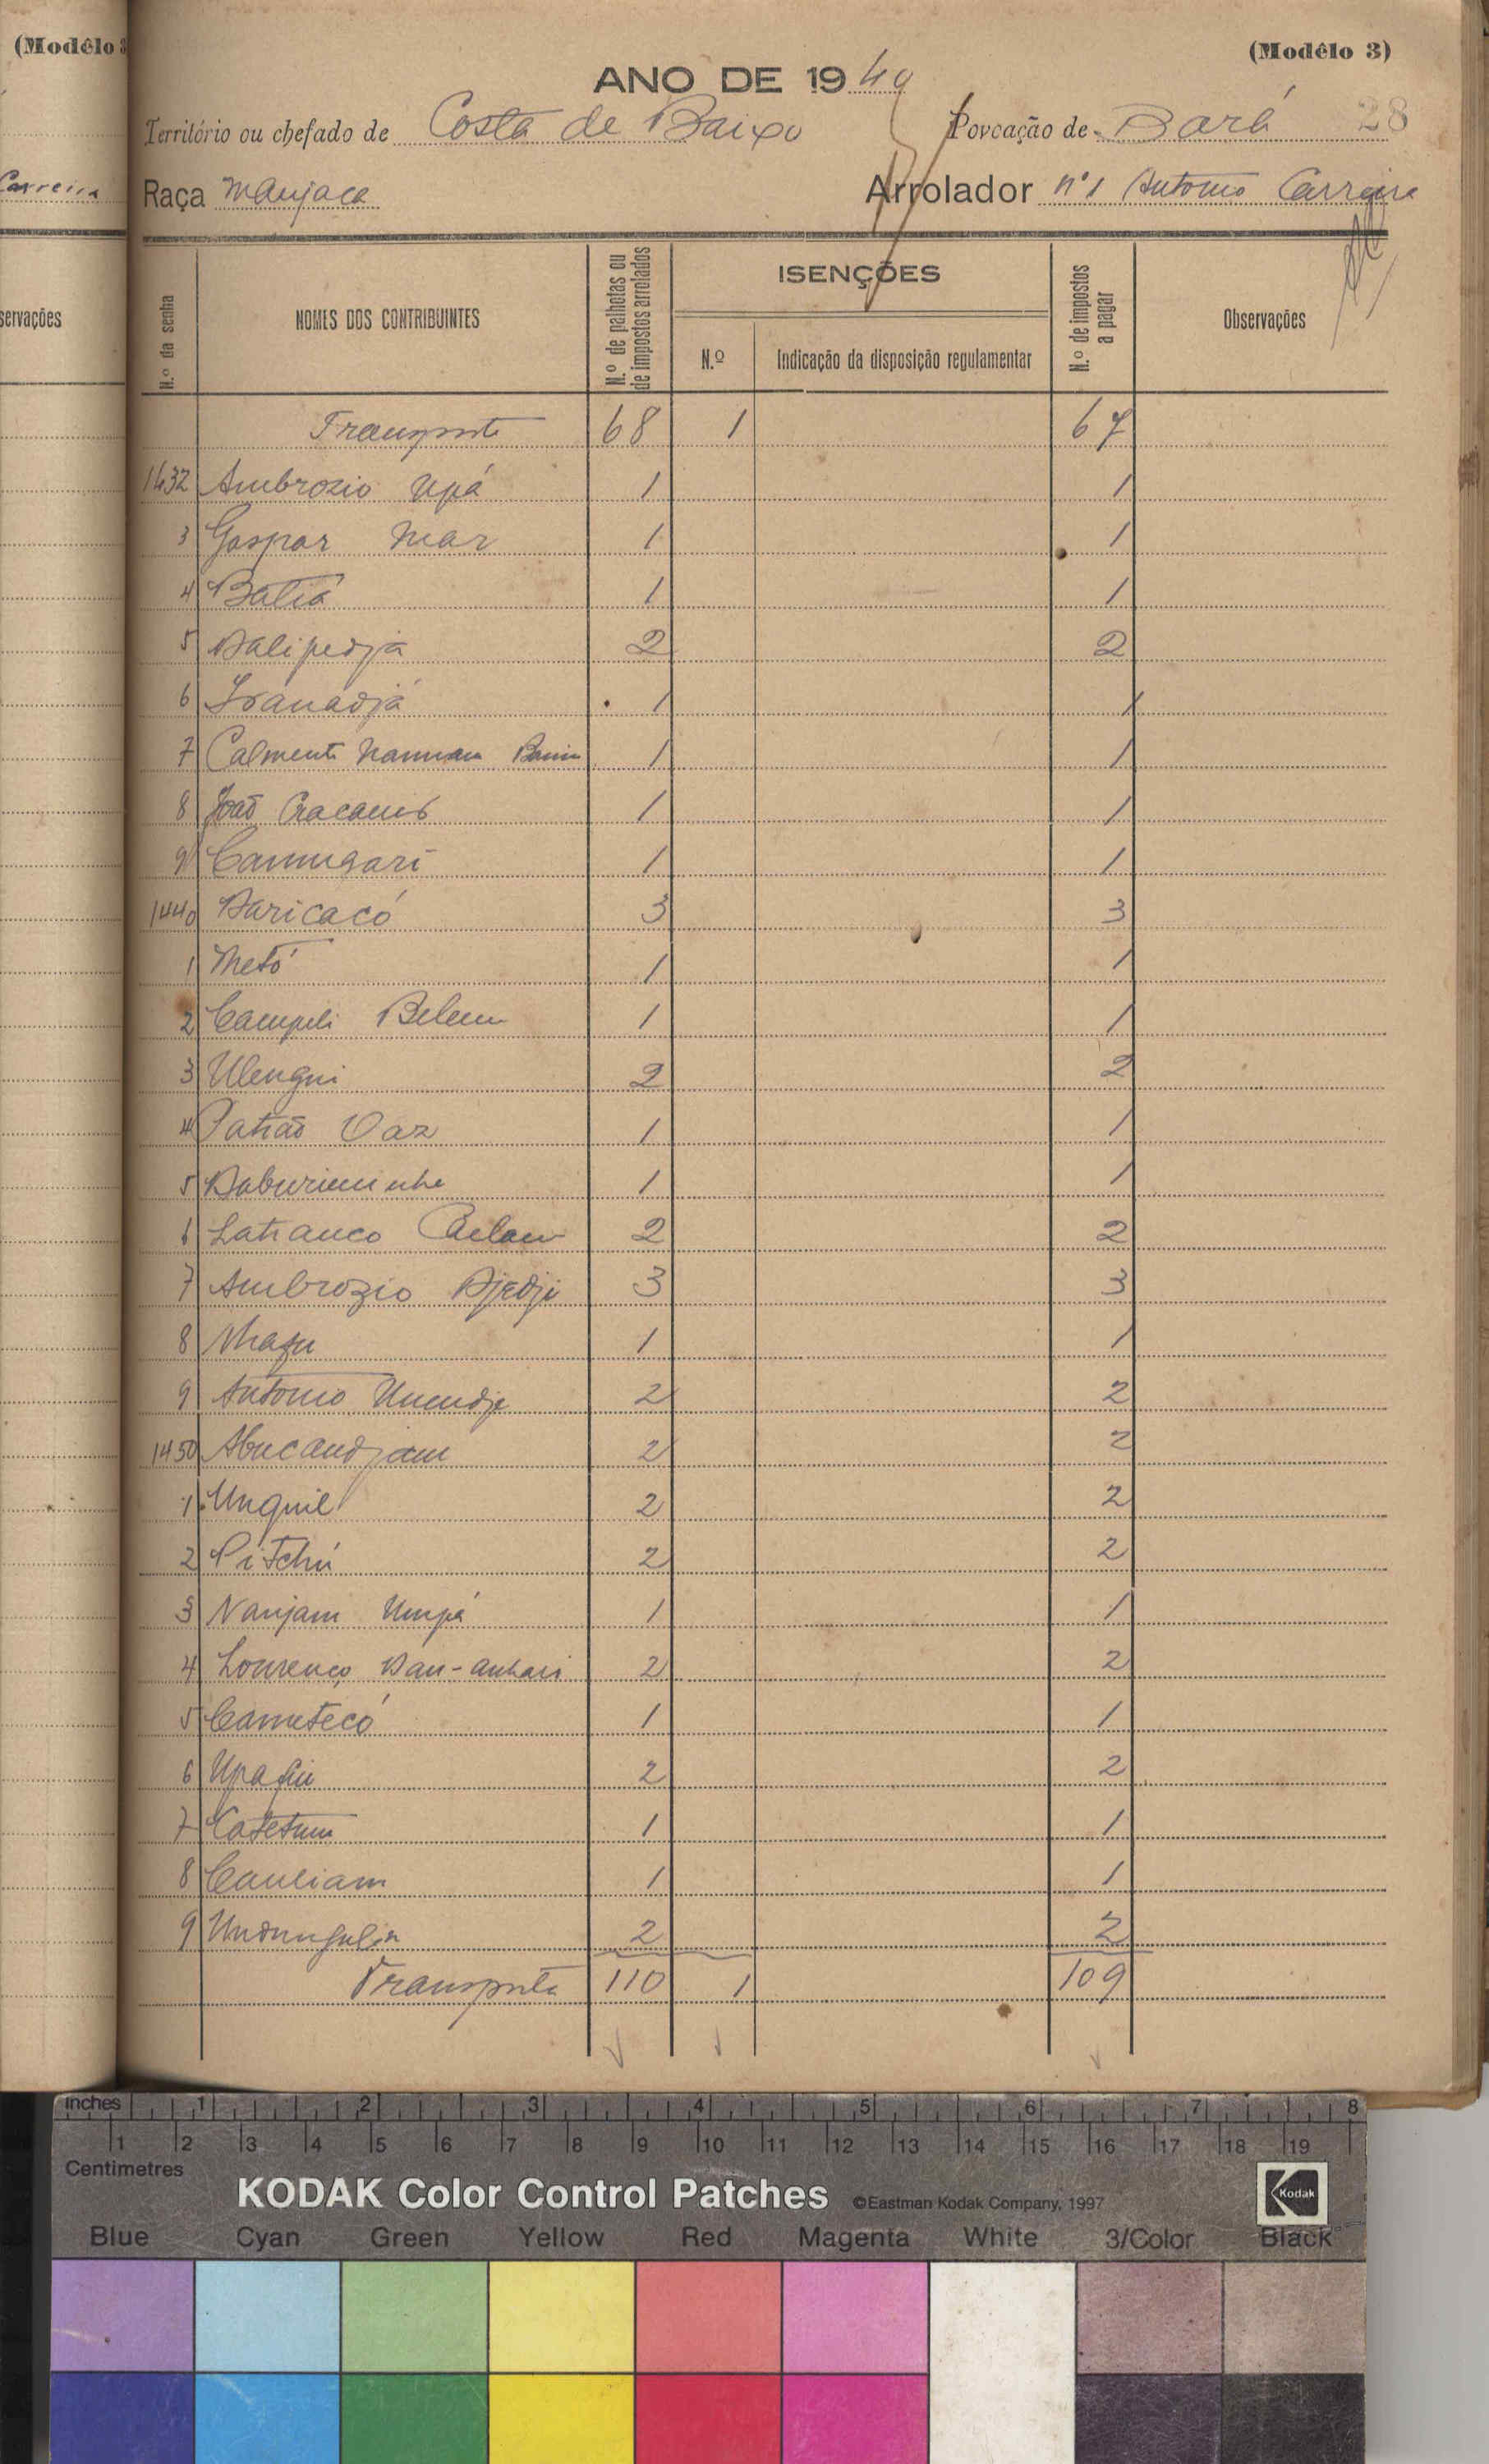 (Modêlo 3
(Modêlo 3)
ANO DE 1949
Território ou chefado de Costa de Baixo Povoação de Bará 28
Carreira
Raça Manjaca Arrolador nº1 Antonio Carreira
servações
N.º da senha NOMES DOS CONTRIBUINTES N.º de palhotas ou de impostos arrolados ISENÇÕES N.º de impostos a pagar Observações
N.º Indicação da disposição regulamentar
Transporte 68 1 67
1432 Ambrozio Upá 1 1
3 Gaspar Mar 1 1
4 Batiá 1 1
5 Dalipedjá 2 2
6 1 1
7 Calmente 1 1
8 João 1 1
9 1 1
1440 Daricacó 3 3
1 Metó 1 1
2 Campeli Belem 1 1
3 Ulengui 2 2
4 Patrão Vaz 1 1
5 1 1
6 2 2
7 Ambrozio Djedji 3 3
8 1 1
9 Antonio 2 2
1450 Abucandjam 2 2
1 Unquil 2 2
2 Pitchú 2 2
3 Nanjam Umpá 1 1
4 Lourenço 2 2
5 Camutecó 1 1
6 2 2
7 Catetum 1 1
8 Cauliam 1 1
9 2 2
Transporte 110 1 109
inches 1 2 3 4 5 6 7 8
1 2 3 4 5 6 7 8 9 10 11 12 13 14 15 16 17 18 19
Centimetres
KODAK Color Control Patches ©Eastman Kodak Company, 1997 Kodak
Blue Cyan Green Yellow Red Magenta White 3/Color Black